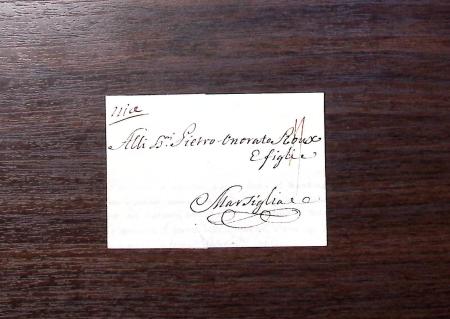 nice
Alli Sri. Pietro Onorato Roux
E figli
Marsiglia